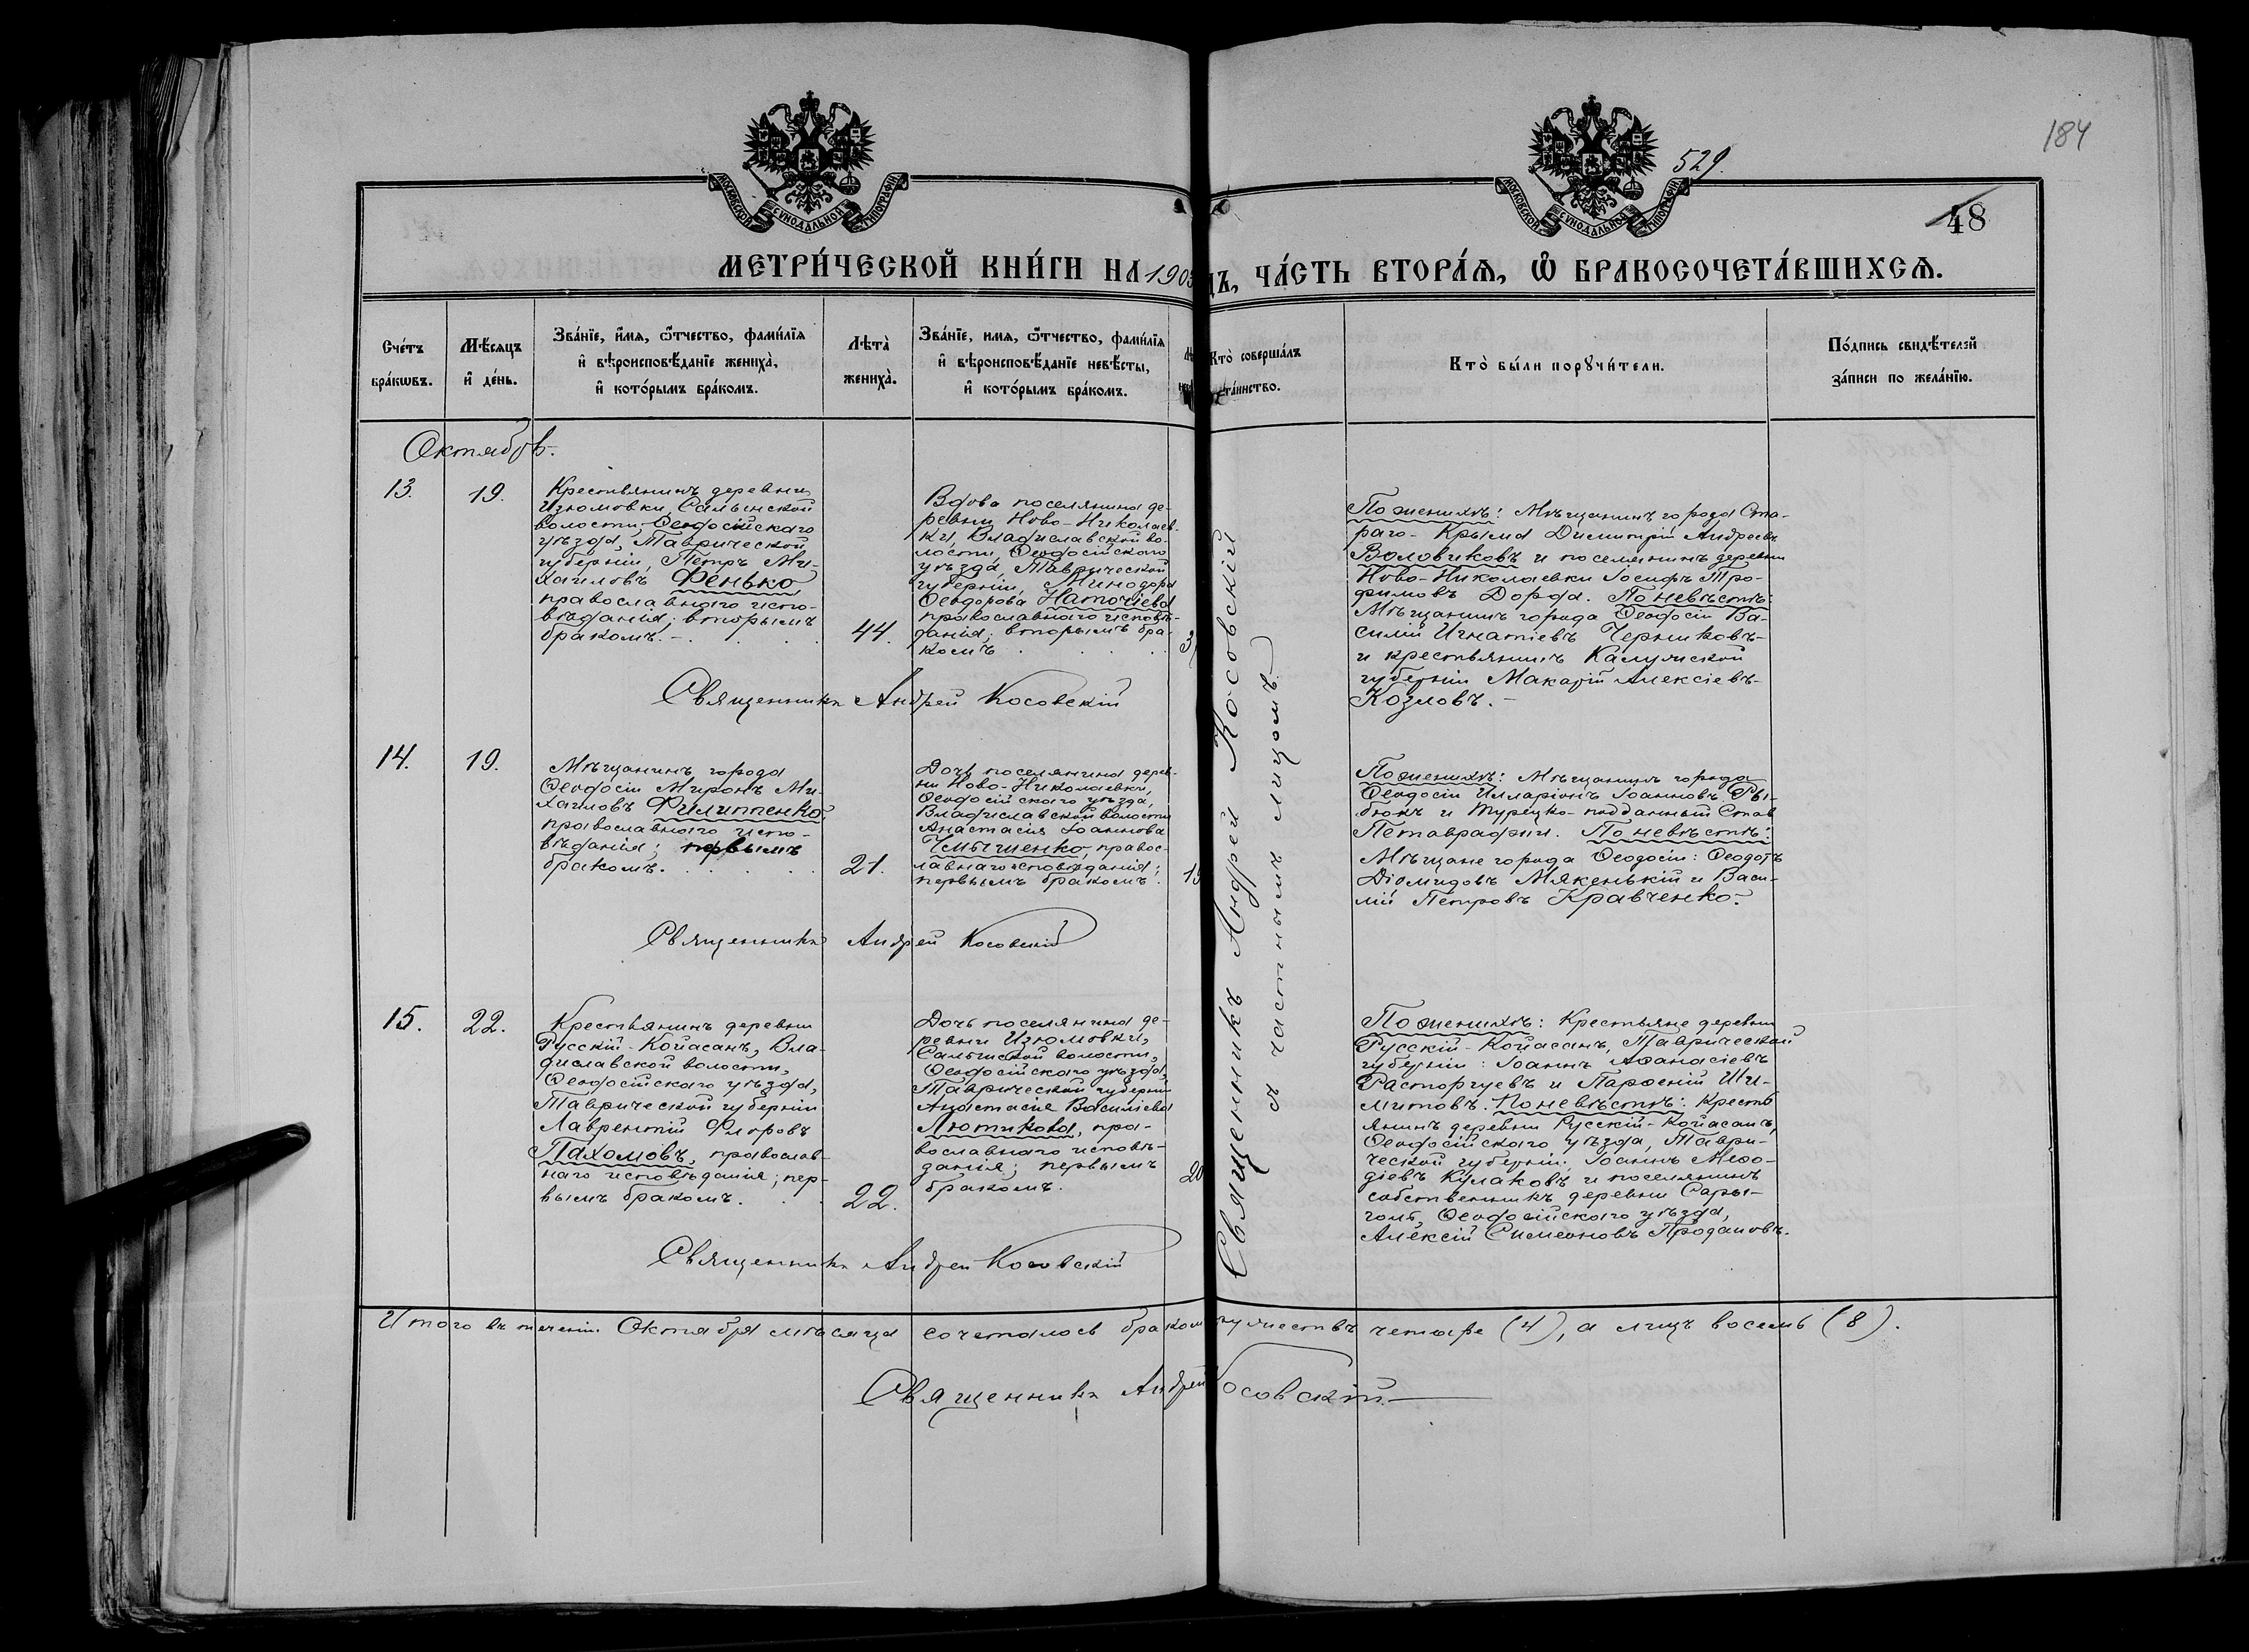 184
529.
48
МОСКОВСКОЙ СѴНОДАЛЬНОЙ ТИПОГРАФІИ
МОСКОВСКОЙ СѴНОДАЛЬНОЙ ТИПОГРАФІИ
МЕТРИ́ЧЕСКОЙ КНИ́ГИ НА 190
ДЪ, ЧА́СТЬ ВТОРА́Ѧ, Ѽ БРАКОСОЧЕТА́ВШИХСѦ.
Сче́тъ
бра́кѡвъ.
Мѣ́сѧцъ
и҆ де́нь.
Зва́нїе, и҆́мѧ, ѻ҆́тчество, фами́лїѧ
и҆ вѣроисповѣ́данїе жениха̀,
и҆ кото́рымъ бра́комъ.
Лѣта̀
жениха̀.
Зва́нїе, имѧ, ѻ҆́тчество, фами́лїѧ
и҆ вѣроисповѣ́данїе невѣ́сты,
и҆ кото́рымъ бра́комъ.
Кто̀ соверша́лъ
та́инство.
Кто̀ бы́ли порꙋчи́тели.
По́дпись свидѣ́телей
за́писи по жела́нїю.
Октябрь.
13.
19.
Крестьянинъ деревни
Изюмовки, Салынской
волости, Ѳеодосійскаго
уѣзда, Таврической
губерніи, Петръ Ми-
хаиловъ Фенько
православнаго испо-
вѣданія; вторымъ
бракомъ.
44.
Вдова поселянина де-
ревни Ново-Николаев-
ки, Владиславской во-
лости, Ѳеодосійскаго
уѣзда, Таврической
губерніи, Минодора
Ѳеодорова Наточіева
православнаго исповѣ-
данія; вторымъ бра-
комъ
3
По женихѣ: Мѣщанинъ города Ста-
раго-Крыма Димитрій Андреевъ
Воловиковъ и поселянинъ деревни
Ново-Николаевки Іосифъ Тро-
фимовъ Дорда. По невѣстѣ:
Мѣщанинъ города Ѳеодосіи Ва-
силій Игнатіевъ Черниковъ
и крестьянинъ Калужской
губерніи Макарій Алексіевъ
Козловъ.
Священникъ Андрей Косовскій
14.
19.
Мѣщанинъ города
Ѳеодосіи Миронъ Ми-
хаиловъ Филипенко
православнаго испо-
вѣданія; первымъ
бракомъ.
21.
Дочь поселянина дерев-
ни Ново-Николаевки,
Ѳеодосійскаго уѣзда,
Владиславской волости
Анастасія Іоаннова
Чмышенко, правос-
лавнаго исповѣданія;
первымъ бракомъ.
19
По женихѣ: Мѣщанинъ города
Ѳеодосіи Илларіонъ Іоанновъ Ры-
бюкъ и Турецко-подданный Ставъ
Петаврафжи. По невѣстѣ:
Мѣщане города Ѳеодосіи: Ѳеодотъ
Діомидовъ Мякенькій и Васи-
лій Петровъ Кравченко.
Священникъ Андрей Косовскій
15.
22.
Крестьянинъ деревни
Русскій-Койасанъ, Вла-
диславской волости,
Ѳеодосійскаго уѣзда,
Таврической губерніи
Лаврентій Флоровъ
Пахомовъ, православ-
наго исповѣданія; пер-
вымъ бракомъ.
22.
Дочь поселянина де-
ревни Изюмовки,
Салынской волости,
Ѳеодосійскаго уѣзда,
Таврической губерніи
Анастасія Василіева
Лютикова, пра-
вославнаго исповѣ-
данія; первымъ
бракомъ.
20
По женихѣ: Крестьяне деревни
Русскій-Койасанъ, Таврической
губерніи: Іоаннъ Аѳанасіевъ
Расторгуевъ и Парѳеній Ши-
литовъ. По невѣстѣ: Кресть-
янинъ деревни Русскій-Койасанъ,
Ѳеодосійскаго уѣзда, Таври-
ческой губерніи, Іоаннъ Меѳо-
діевъ Кулаковъ и поселянинъ
собственникъ деревни Сары-
голь, Ѳеодосійскаго уѣзда,
Алексій Симеоновъ Продановъ.
Священникъ Андрей Косовскій
Священникъ Андрей Косовскій
съ частнымъ лицомъ.
Итого въ теченіи Октября мѣсяца сочеталось браком четыре (4), а лицъ восемь (8).
Священникъ Андрей Косовскій.